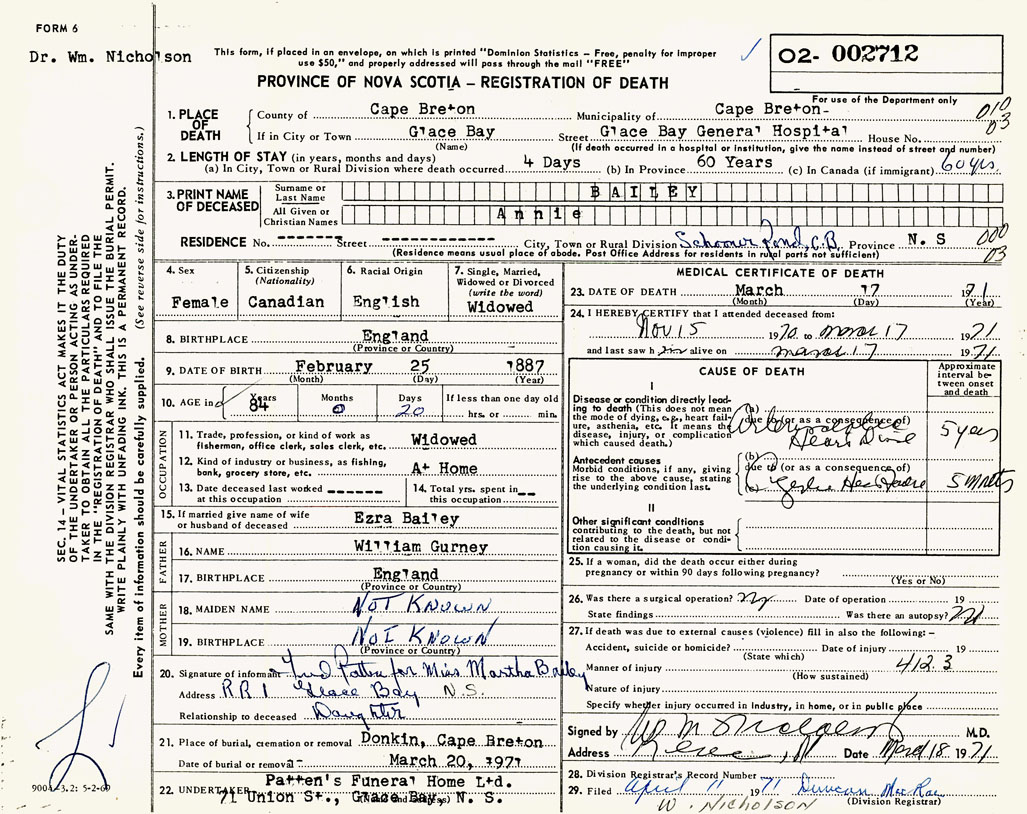 FORM 6
Dr. Wm. Nicholson
This form, if placed in an envelope, on which is printed "Dominion Statistics – Free, penalty for improper
use $50," and properly addressed will pass through the mail "FREE"
02- 002712
For use of the Department only
PROVINCE OF NOVA SCOTIA – REGISTRATION OF DEATH
1. PLACE OF DEATH
County of Cape Breton Municipality of Cape Breton- 010
If in City or Town Glace Bay Street Glace Bay General Hospital House No. 03
(Name) (If death occurred in a hospital or institution, give the name instead of street and number)
2. LENGTH OF STAY (in years, months and days)
(a) In City, Town or Rural Division where death occurred 4 Days (b) In Province 60 Years (c) In Canada (if immigrant) 60 yrs
3. PRINT NAME OF DECEASED
Surname or Last Name BAILEY
All Given or Christian Names Annie
RESIDENCE No. ------- Street ----------- City, Town or Rural Division Schooner Pond, C.B. Province N. S 000
(Residence means usual place of abode. Post Office Address for residents in rural parts not sufficient) 03
4. Sex
Female
5. Citizenship
(Nationality)
Canadian
6. Racial Origin
English
7. Single, Married,
Widowed or Divorced
(write the word)
Widowed
8. BIRTHPLACE England
(Province or Country)
9. DATE OF BIRTH February 25 1887
(Month) (Day) (Year)
10. AGE in Years 84 Months 0 Days 20 If less than one day old
hrs. or min.
OCCUPATION
11. Trade, profession, or kind of work as
fisherman, office clerk, sales clerk, etc. Widowed
12. Kind of industry or business, as fishing,
bank, grocery store, etc. At Home
13. Date deceased last worked ------
at this occupation
14. Total yrs. spent in --
this occupation
15. If married give name of wife
or husband of deceased Ezra Bailey
FATHER
16. NAME William Gurney
17. BIRTHPLACE England
(Province or Country)
MOTHER
18. MAIDEN NAME NOT KNOWN
19. BIRTHPLACE NOT KNOWN
(Province or Country)
20. Signature of informant for Miss Martha Bailey
Address RR 1 Glace Bay N.S.
Relationship to deceased Daughter
21. Place of burial, cremation or removal Donkin, Cape Breton
Date of burial or removal- March 20, 1971
22. UNDERTAKER Patten's Funeral Home Ltd.
71 Union St., Glace Bay, N. S.
(Name and address)
MEDICAL CERTIFICATE OF DEATH
23. DATE OF DEATH March 17 1971
(Month) (Day) (Year)
24. I HEREBY CERTIFY that I attended deceased from:
Nov 15 1970 to March 17 1971
and last saw h alive on March 17 1971
CAUSE OF DEATH
Approximate
interval be-
tween onset
and death
I
Disease or condition directly lead-
ing to death (This does not mean
the mode of dying, e.g., heart fail-
ure, asthenia, etc. It means the
disease, injury, or complication
which caused death.)
(a)
due to (or as a consequence of)
Heart
5 years
Antecedent causes
Morbid conditions, if any, giving
rise to the above cause, stating
the underlying condition last.
(b)
due to (or as a consequence of)
5
II
Other significant conditions
contributing to the death, but not
related to the disease or condi-
tion causing it.
25. If a woman, did the death occur either during
pregnancy or within 90 days following pregnancy?
(Yes or No)
26. Was there a surgical operation? Date of operation 19
State findings Was there an autopsy?
27. If death was due to external causes (violence) fill in also the following: –
Accident, suicide or homicide? Date of injury 19
(State which)
Manner of injury 412 3
(How sustained)
Nature of injury
Specify whether injury occurred in Industry, in home, or in public place
Signed by M.D.
Address Date March 18 1971
28. Division Registrar's Record Number
29. Filed April 11 1971 Duncan MacRae
W. NICHOLSON (Division Registrar)
SEC. 14 – VITAL STATISTICS ACT MAKES IT THE DUTY
OF THE UNDERTAKER OR PERSON ACTING AS UNDER-
TAKER TO OBTAIN ALL THE PARTICULARS REQUIRED
IN THE "REGISTRATION OF DEATH" AND TO FILE THE
SAME WITH THE DIVISION REGISTRAR WHO SHALL ISSUE THE BURIAL PERMIT.
WRITE PLAINLY WITH UNFADING INK. THIS IS A PERMANENT RECORD.
Every item of information should be carefully supplied. (See reverse side for instructions.)
9004-3.2: 5-2-69